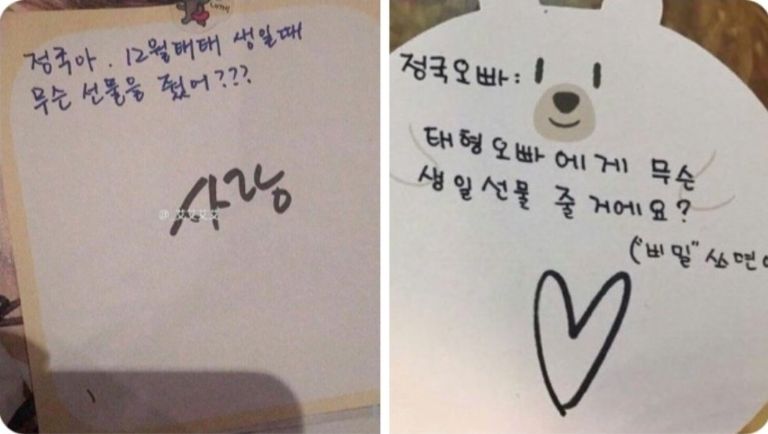 정국아. 12월 태태 생일때
무슨 선물을 줬어???
사랑
@_艾艾艾艾
정국오빠:
태형오빠에게 무슨
생일선물 줄거에요?
("비밀" 쓰면